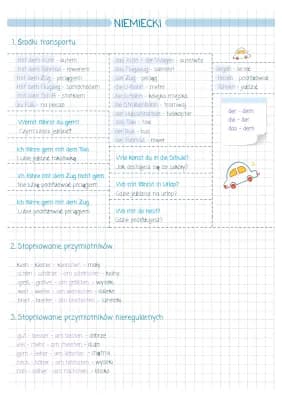 NIEMIECKI
1. Środki transportu
mit dem Auto - autem
mit dem Fahrrad - rowerem
mit dem Zug - pociągiem
mit dem Flugzeug - samolotem
mit dem Schiff - statkiem
zu Fuß - na pieszo
das Auto / der Wagen - auto/auta
das Flugzeug - samolot
der Zug - pociąg
die U-Bahn - metro
die S-Bahn - kolejka miejska
die Straßenbahn - tramwaj
der Hubschrauber - helikopter
das Taxi - taxi
der Bus - bus
das Fahrrad - rower
fliegen - lecieć
reisen - podróżować
fahren - jeździć
der - dem
die - der
das - dem
Womit fährst du gern?
Czym lubisz jeździć?
Ich fahre gern mit dem Taxi.
Lubię jeździć taksówką.
Ich fahre gern mit dem Zug nicht gern.
Nie lubię podróżować pociągiem.
Ich fahre gern mit dem Zug.
Lubię podróżować pociągiem.
Wie kommst du in die Schule?
Jak dostajesz się do szkoły?
Wo hin fährst in Urlaub?
Gdzie jedziesz na urlop?
Wo hin du reist?
Gdzie podróżujesz?
2. Stopniowanie przymiotników
klein - kleiner - kleinsten - mały
groß - größer - am größten - wysoki
3. Stopniowanie przymiotników nieregularnych
gut - besser - am besten - dobrze
viel - mehr - am meisten - dużo
gern - lieber - am liebsten - chętnie
hoch - höher - am höchsten - wysoki
nah - näher - am nächsten - blisko